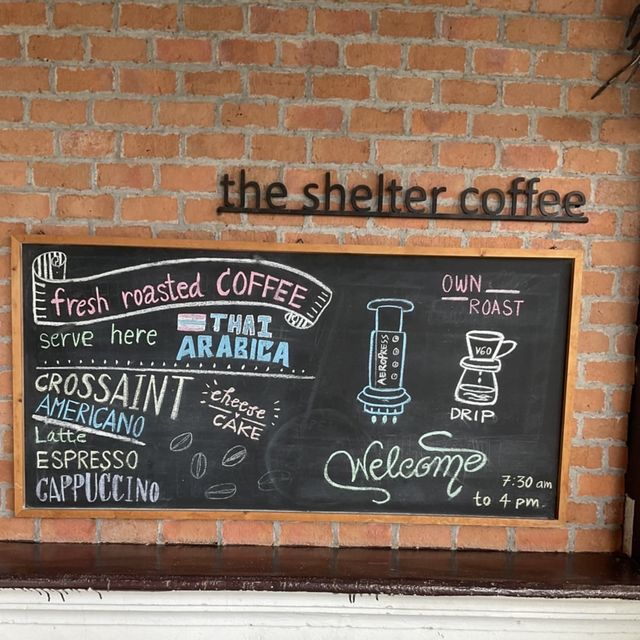 the shelter coffee
fresh roasted COFFEE
serve here THAI
ARABICA
CROSSAINT
AMERICANO
Latte
ESPRESSO
CAPPUCCINO
cheese
CAKE
AEROPRESS
OWN
ROAST
V60
DRIP
Welcome
7:30 am
to 4 pm